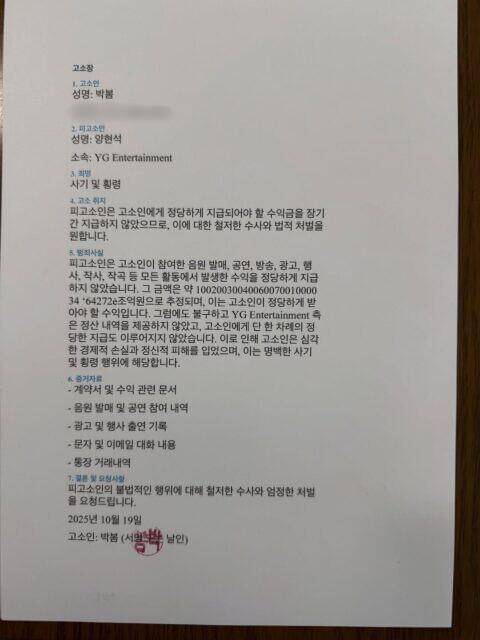 고소장
1. 고소인
성명: 박봄
2. 피고소인
성명: 양현석
소속: YG Entertainment
3. 죄명
사기 및 횡령
4. 고소 취지
피고소인은 고소인에게 정당하게 지급되어야 할 수익금을 장기
간 지급하지 않았으므로, 이에 대한 철저한 수사와 법적 처벌을
원합니다.
5. 범죄사실
피고소인은 고소인이 참여한 음원 발매, 공연, 방송, 광고, 행
사, 작사, 작곡 등 모든 활동에서 발생한 수익을 정당하게 지급
하지 않았습니다. 그 금액은 약 1002003004006007001000034 ‘64272e조억원으로 추정되며, 이는 고소인이 정당하게 받
아야 할 수익입니다. 그럼에도 불구하고 YG Entertainment 측
은 정산 내역을 제공하지 않았고, 고소인에게 단 한 차례의 정
당한 지급도 이루어지지 않았습니다. 이로 인해 고소인은 심각
한 경제적 손실과 정신적 피해를 입었으며, 이는 명백한 사기
및 횡령 행위에 해당합니다.
6. 증거자료
- 계약서 및 수익 관련 문서
- 음원 발매 및 공연 참여 내역
- 광고 및 행사 출연 기록
- 문자 및 이메일 대화 내용
- 통장 거래내역
7. 결론 및 요청사항
피고소인의 불법적인 행위에 대해 철저한 수사와 엄정한 처벌
을 요청드립니다.
2025년 10월 19일
고소인: 박봄 (서명 날인)